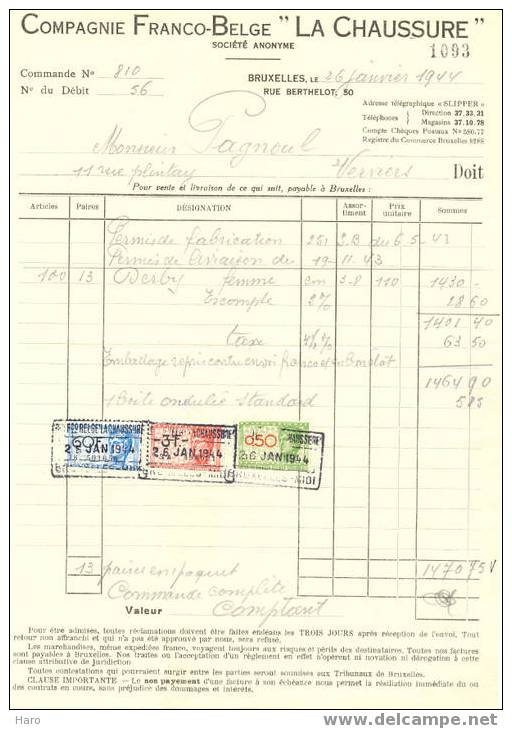 COMPAGNIE FRANCO-BELGE " LA CHAUSSURE "
SOCIÉTÉ ANONYME
1093
Commande No 810
BRUXELLES, LE 26 janvier 1944
No du Débit 56
RUE BERTHELOT, 50
Adresse télégraphique « SLIPPER »
Téléphones } Direction 37.33.21
Magasins 37.10.78
Compte Chèques Postaux No 280.77
Registre du Commerce Bruxelles 9288
Monsieur Pagnoul
11 rue
Doit
Pour vente et livraison de ce qui suit, payable à Bruxelles :
Articles Paires DÉSIGNATION Assortiment Prix unitaire Sommes
Permis de fabrication 251 3.B du 6.5.43
Permis de livraison du 19-11-43
100 13 Derby femme cm 3-8 110 1430-
Escompte 2% 28 60
1401 40
taxe 4½% 63 50
Emballage repris contre envoi franco
1464 90
1 Boite ondulée Standard 5 85
60F -3F- 0F50
26 JAN 1944 26 JAN 1944 26 JAN 1944
BRUXELLES-MIDI
13 paires en paquet 1470 75
Commande complète
Valeur Comptant
Pour être admises, toutes réclamations doivent être faites endéans les TROIS JOURS après réception de l'envoi. Tout
retour non affranchi et qui n'a pas été approuvé par nous, sera refusé.
Les marchandises, même expédiées franco, voyagent toujours aux risques et périls des destinataires. Toutes nos factures
sont payables à Bruxelles. Nos traites ou l'acceptation d'un règlement en effet n'opèrent ni novation ni dérogation à cette
clause attributive de juridiction
Toutes contestations qui pourraient surgir entre les parties seront soumises aux Tribunaux de Bruxelles.
CLAUSE IMPORTANTE — Le non payement d'une facture à son échéance nous permet la résiliation immédiate du ou
des contrats en cours, sans préjudice des dommages et intérêts.
Haro
www.delcampe.net